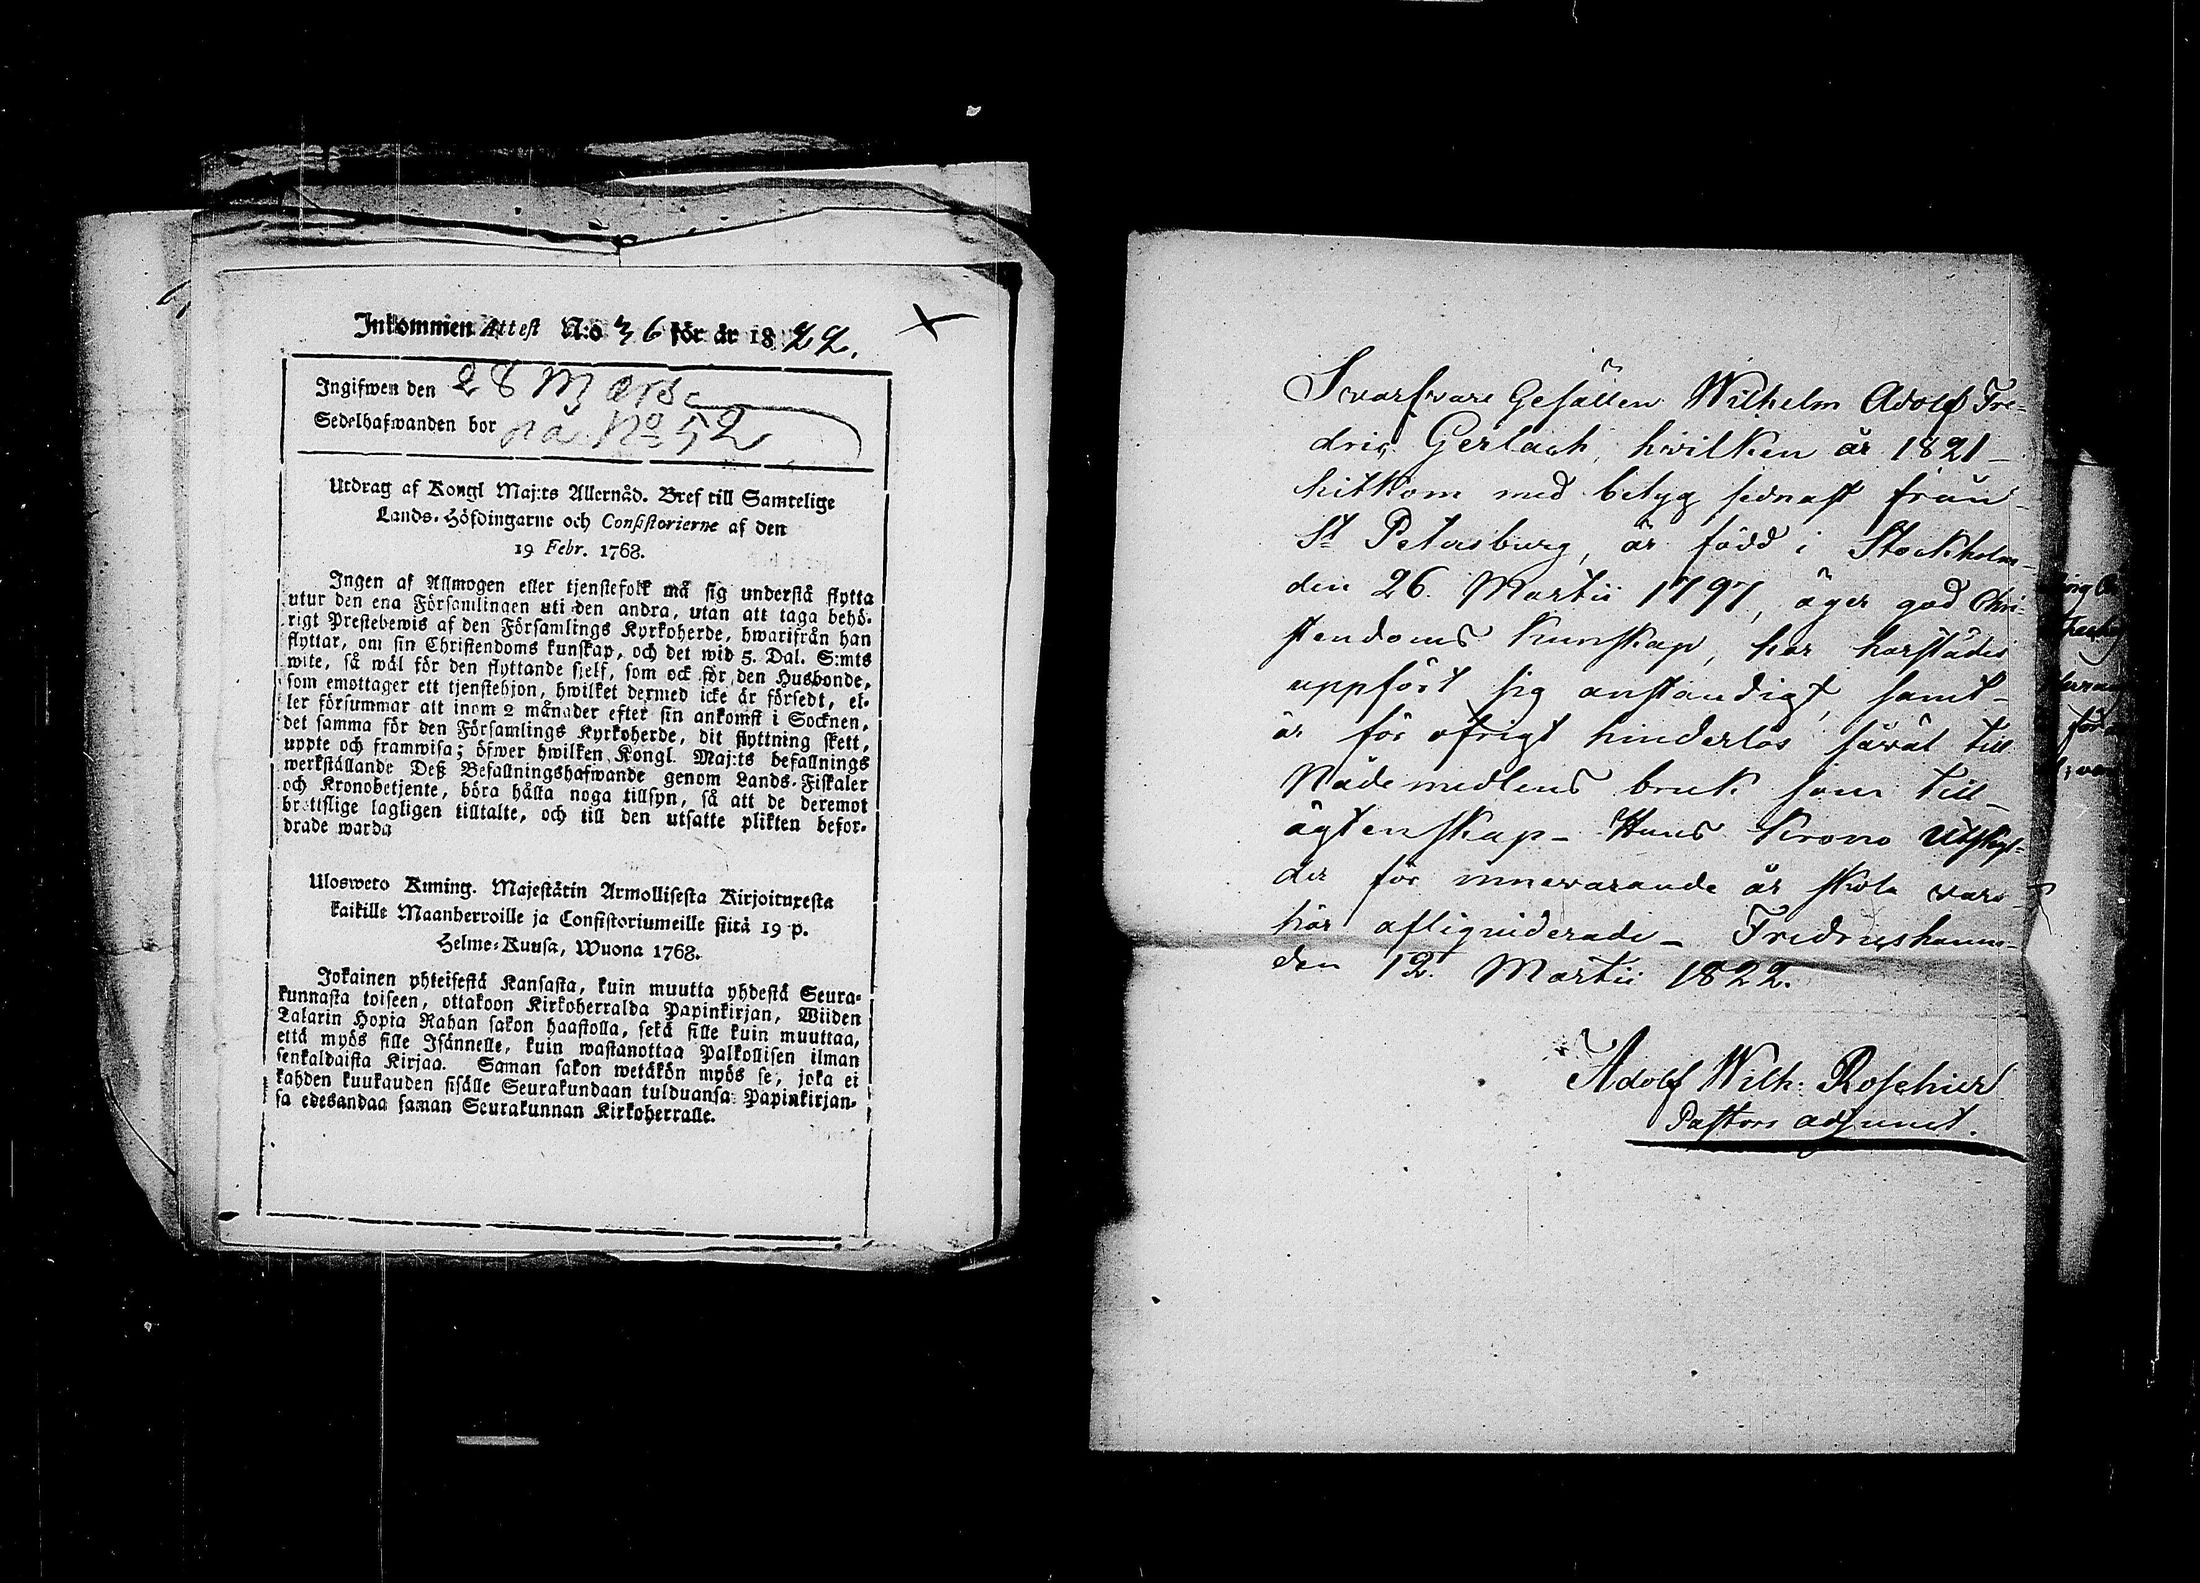 Inkommen Attest N:o 36 för år 1822.
Ingifwen den 28 Mars.
Sedelhafwanden bor på No 52
Utdrag af Kongl Maj:ts Allernåd. Bref till Samtelige
Lands-Höfdingarne och Consistorierne af den
19 Febr. 1768.
Ingen af Allmogen eller tjenstefolk må sig understå flytta
utur den ena Församlingen uti den andra, utan att taga behö-
rigt Prestebewis af den Församlings Kyrkoherde, hwarifrån han
flyttar, om sin Christendoms kunskap, och det wid 5. Dal. S:mts
wite, så wäl för den flyttande sielf, som ock för den Husbonde,
som emottager ett tjenstehjon, hwilket dermed icke är försedt, el-
ler försummar att inom 2 månader efter sin ankomst i Socknen,
det samma för den Församlings Kyrkoherde, dit flyttning skett,
uppte och framwisa; öfwer hwilken Kongl. Maj:ts befallnings
werkställande Deß Befallningshafwande genom Lands-Fiskaler
och Kronobetjente, böra hålla noga tillsyn, så att de deremot
brottslige lagligen tilltalte, och till den utsatte plikten befor-
drade warda
Ulosweto Kuning. Majestätin Armollisesta Kirjoituxesta
kaikille Maanherroille ja Consistoriumeille siitä 19 p.
Helme-Kuusa, Wuona 1768.
Jokainen yhteisestä Kansasta, kuin muutta yhdestä Seura-
kunnasta toiseen, ottakoon Kirkoherralda Papinkirjan, Wiiden
Talarin Hopia Rahan sakon haastolla, sekä sille kuin muuttaa,
että myös sille Isännelle, kuin wastanottaa Palkollisen ilman
senkaldaista Kirjaa. Saman sakon wetäkön myös se, joka ei
kahden kuukauden sisälle Seurakundaan tulduansa Papinkirjan-
sa edesandaa saman Seurakunnan Kirkoherralle.
Svarfvare Gesällen Wilhelm Adolf Fre-
dric Gerlach, hvilken år 1821
hitkom med betyg sednast från
St Petersburg, är född i Stockholm
den 26. Martii 1797, äger god Chri-
stendoms kunskap, har härstädes
uppfört sig anständigt, samt
är för öfrigt hinderlös såväl till
Nådemedlens bruk som till
ägtenskap - Hans Krono Utskyl-
der för innevarande år skola vara
här afliquiderade - Fredricshamn
den 12. Martii 1822.
Adolf Wilh: Roschier
Pastors adjunct.